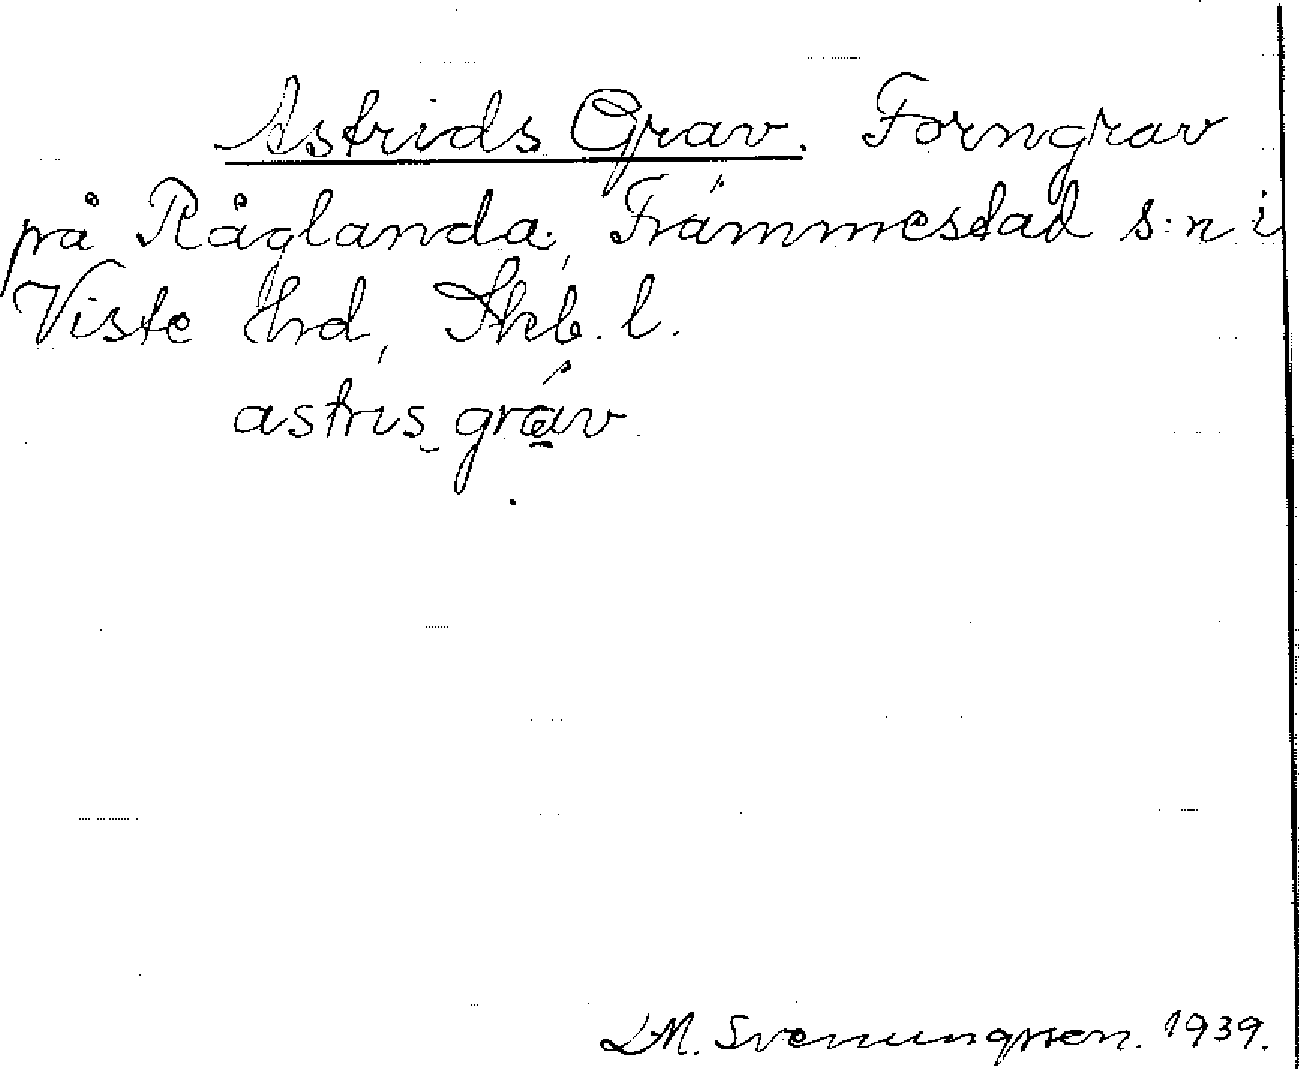 Astrids Grav. Forngrav
på Råglanda, Främmestad s:n i
Viste hrd, Skb. l.
astris gráv
L M. Svenungsson. 1939.